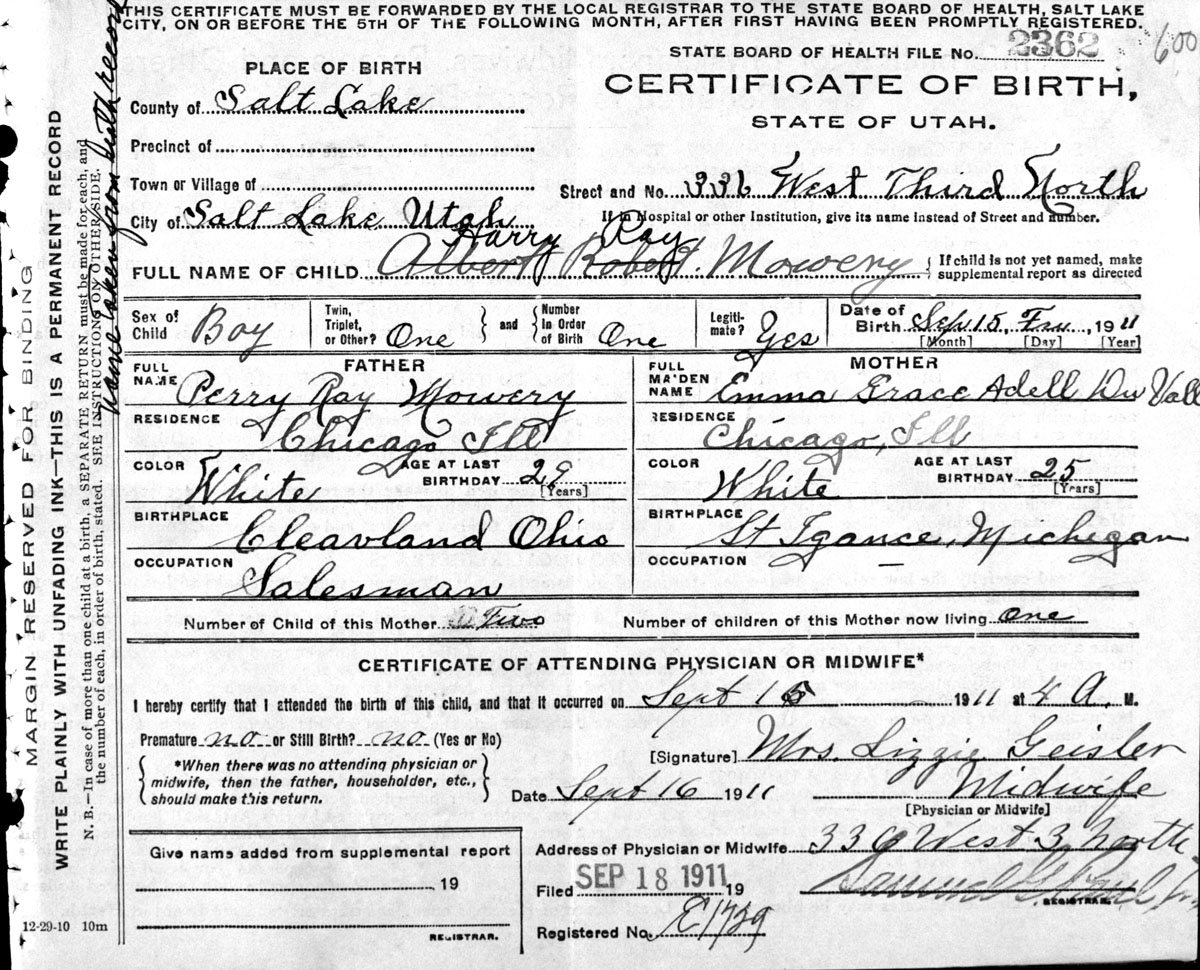 THIS CERTIFICATE MUST BE FORWARDED BY THE LOCAL REGISTRAR TO THE STATE BOARD OF HEALTH, SALT LAKE
CITY, ON OR BEFORE THE 5TH OF THE FOLLOWING MONTH, AFTER FIRST HAVING BEEN PROMPTLY REGISTERED.
600
STATE BOARD OF HEALTH FILE No. 2362
PLACE OF BIRTH
CERTIFICATE OF BIRTH,
STATE OF UTAH.
County of Salt Lake
Precinct of
Town or Village of
Street and No. 336 West Third North
City of Salt Lake Utah
If in Hospital or other Institution, give its name instead of Street and number.
Harry Ray
FULL NAME OF CHILD Albert Robert. Mowery
If child is not yet named, make
supplemental report as directed
Sex of Child Boy
Twin, Triplet, or Other? One
and
Number In Order of Birth One
Legitimate? Yes
Date of Birth Sep 15, Fri, 1911
[Month] [Day] [Year]
FATHER
FULL NAME Perry Ray Mowery
RESIDENCE Chicago Ill
COLOR White
AGE AT LAST BIRTHDAY 29
[Years]
BIRTHPLACE Cleavland Ohio
OCCUPATION Salesman
MOTHER
FULL MAIDEN NAME Emma Grace Adell Du Vall
RESIDENCE Chicago, Ill
COLOR White
AGE AT LAST BIRTHDAY 25
[Years]
BIRTHPLACE St Igance, Michegan
OCCUPATION —
Number of Child of this Mother Two
Number of children of this Mother now living one
CERTIFICATE OF ATTENDING PHYSICIAN OR MIDWIFE*
I hereby certify that I attended the birth of this child, and that it occurred on Sept 15 1911 at 4 A. M.
Premature no or Still Birth? no (Yes or No)
*When there was no attending physician or
midwife, then the father, householder, etc.,
should make this return.
[Signature] Mrs. Lizzie Geisler
Date Sept 16 1911
Midwife
[Physician or Midwife]
Give name added from supplemental report
19
REGISTRAR.
Address of Physician or Midwife 336 West 3 North
Filed SEP 18 1911 19
Samuel
REGISTRAR.
Registered No. E1739
12-29-10 10m
MARGIN RESERVED FOR BINDING
WRITE PLAINLY WITH UNFADING INK—THIS IS A PERMANENT RECORD
N. B.—In case of more than one child at a birth, a SEPARATE RETURN must be made for each, and
the number of each, in order of birth, stated. SEE INSTRUCTIONS ON OTHER SIDE.
name taken from birth record